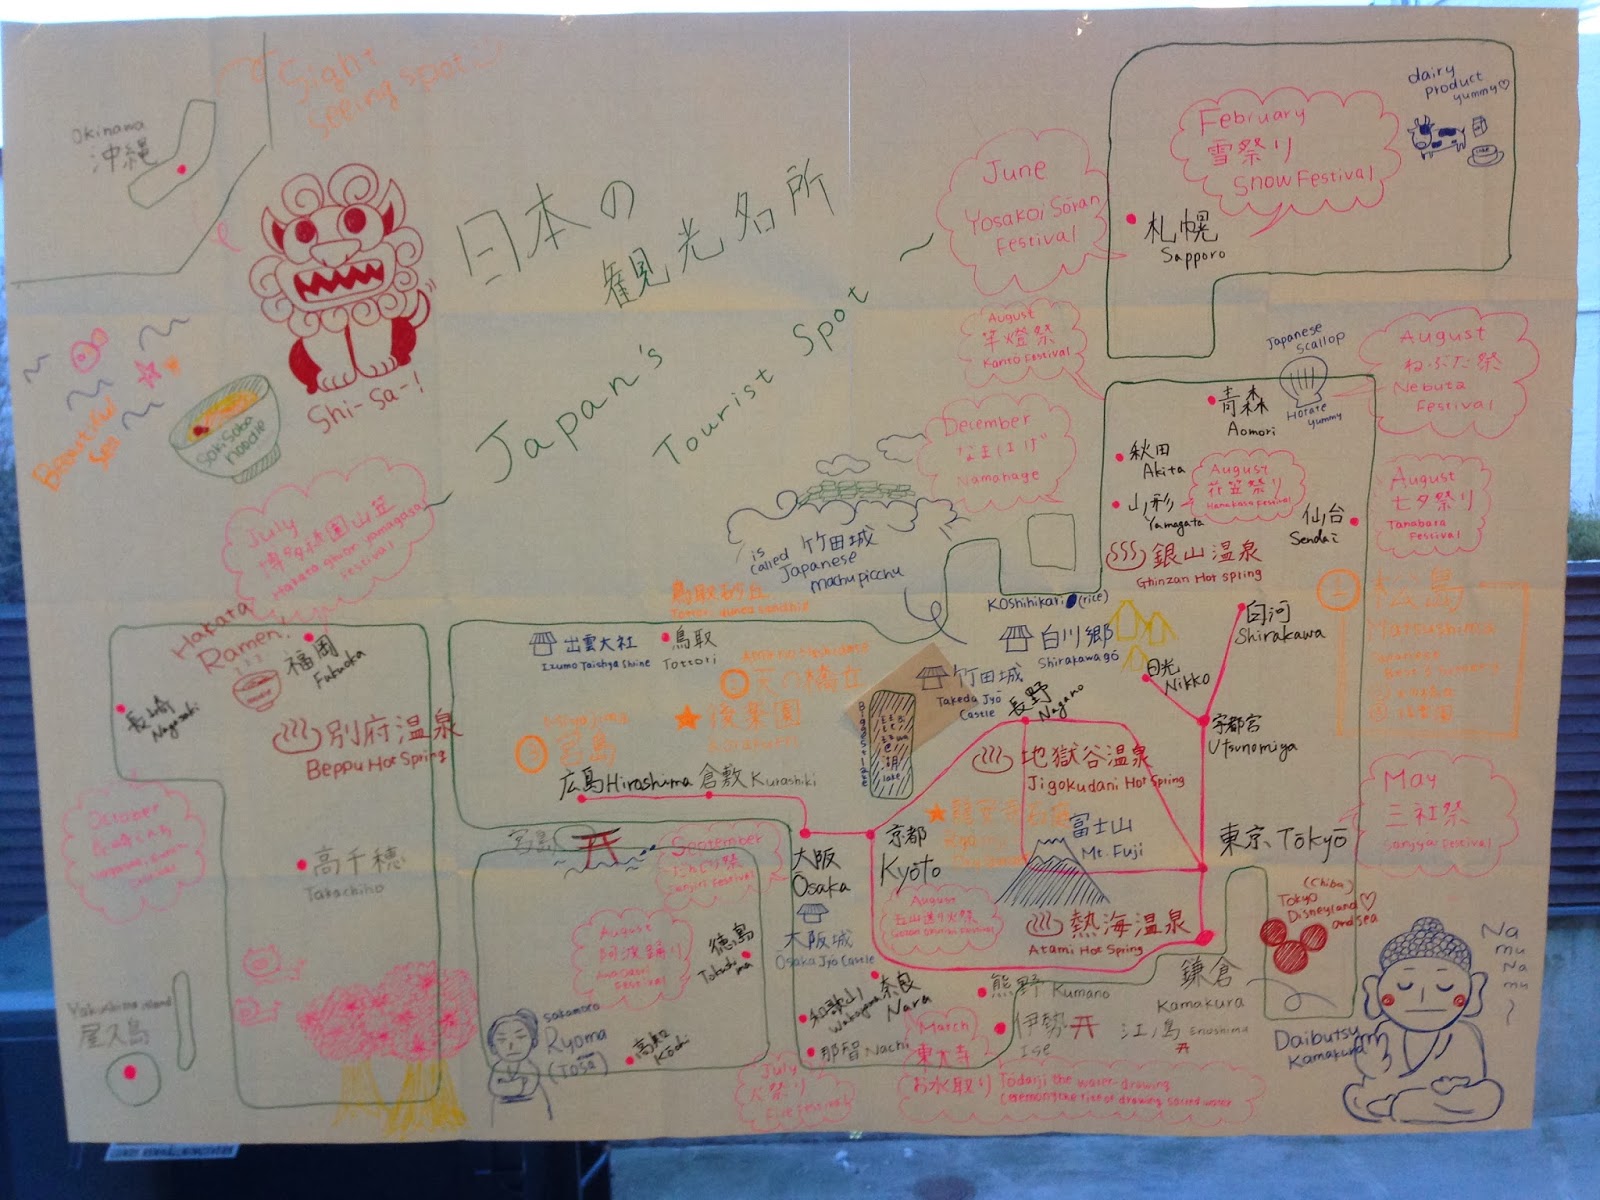 Sight
seeing spot
Okinawa
沖縄
日本の
観光名所
Japan's
Tourist Spot
Shi-Sa-!
Beautiful
Sea
Soki Soba
noodle
dairy
product
yummy♡
February
雪祭り
Snow Festival
札幌
Sapporo
June
Yosakoi Sōran
Festival
August
竿燈祭
Kantō Festival
Japanese
Scallop
Hotate
yummy
August
ねぶた祭
Nebuta
Festival
青森
Aomori
December
なまはげ
Namahage
秋田
Akita
山形
Yamagata
August
花笠祭り
Hanakasa Festival
仙台
Sendai
August
七夕祭り
Tanabara
Festival
銀山温泉
Ghinzan Hot Spring
is
called
竹田城
Japanese
machupicchu
Koshihikari (rice)
July
博多祇園山笠
Hakata ghion yamagasa
Festival
Hakata
Ramen!
福岡
Fukuoka
長崎
Nagasaki
別府温泉
Beppu Hot Spring
出雲大社
Izumo Taishya Shrine
鳥取砂丘
鳥取
Tottori
② 天の橋立
★ 後楽園
③ 宮島
白川郷
Shirakawagō
竹田城
Takeda Jyō
Castle
長野
Nagano
日光
Nikko
白河
Shirakawa
宇都宮
Utsunomiya
① 松島
Matsushima
広島 Hiroshima
倉敷 Kurashiki
Biggest lake
lake
地獄谷温泉
Jigokudani Hot Spring
富士山
Mt. Fuji
東京 Tōkyō
May
三社祭
Sanjya Festival
京都
Kyōto
大阪
Ōsaka
大阪城
Osaka Jyō Castle
宮島
September
だんじり祭
Danjiri Festival
October
高千穂
Takachiho
August
阿波踊り
Awa odori
Festival
徳島
Tokushima
August
五山送り火祭
熱海温泉
Atami Hot Spring
(Chiba)
Tokyo
Disneyland♡
and sea
鎌倉
Kamakura
江ノ島 Enoshima
Daibutsu
Kamakura
Na
mu
Na
mu
熊野 Kumano
伊勢
Ise
奈良
Nara
和歌山
Wakayama
那智 Nachi
March
東大寺
お水取り
Tōdaiji the water-drawing
Ceremony the rite of drawing sacred water
July
火祭り
Fire Festival
高知
Kōchi
Sakamoto
Ryoma
(Tosa)
Yakushima island
屋久島